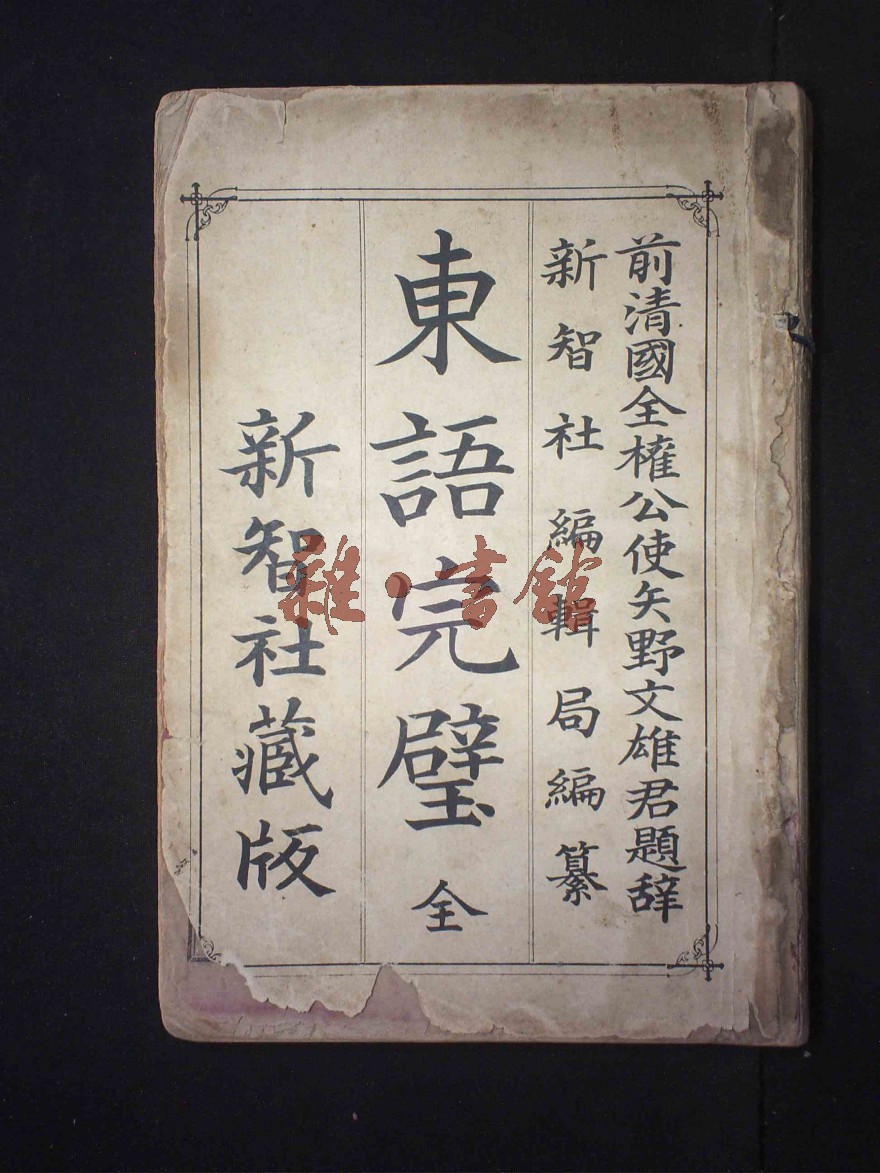 前清國全權公使矢野文雄君題辞
新智社編輯局編纂
東語完璧 全
新智社藏版
雜·書館